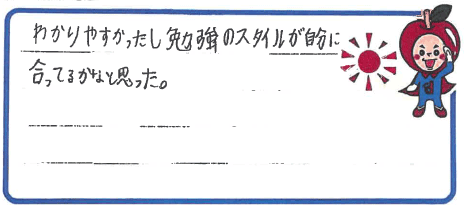 わかりやすかったし勉強のスタイルが自分に
合ってるかなと思った。